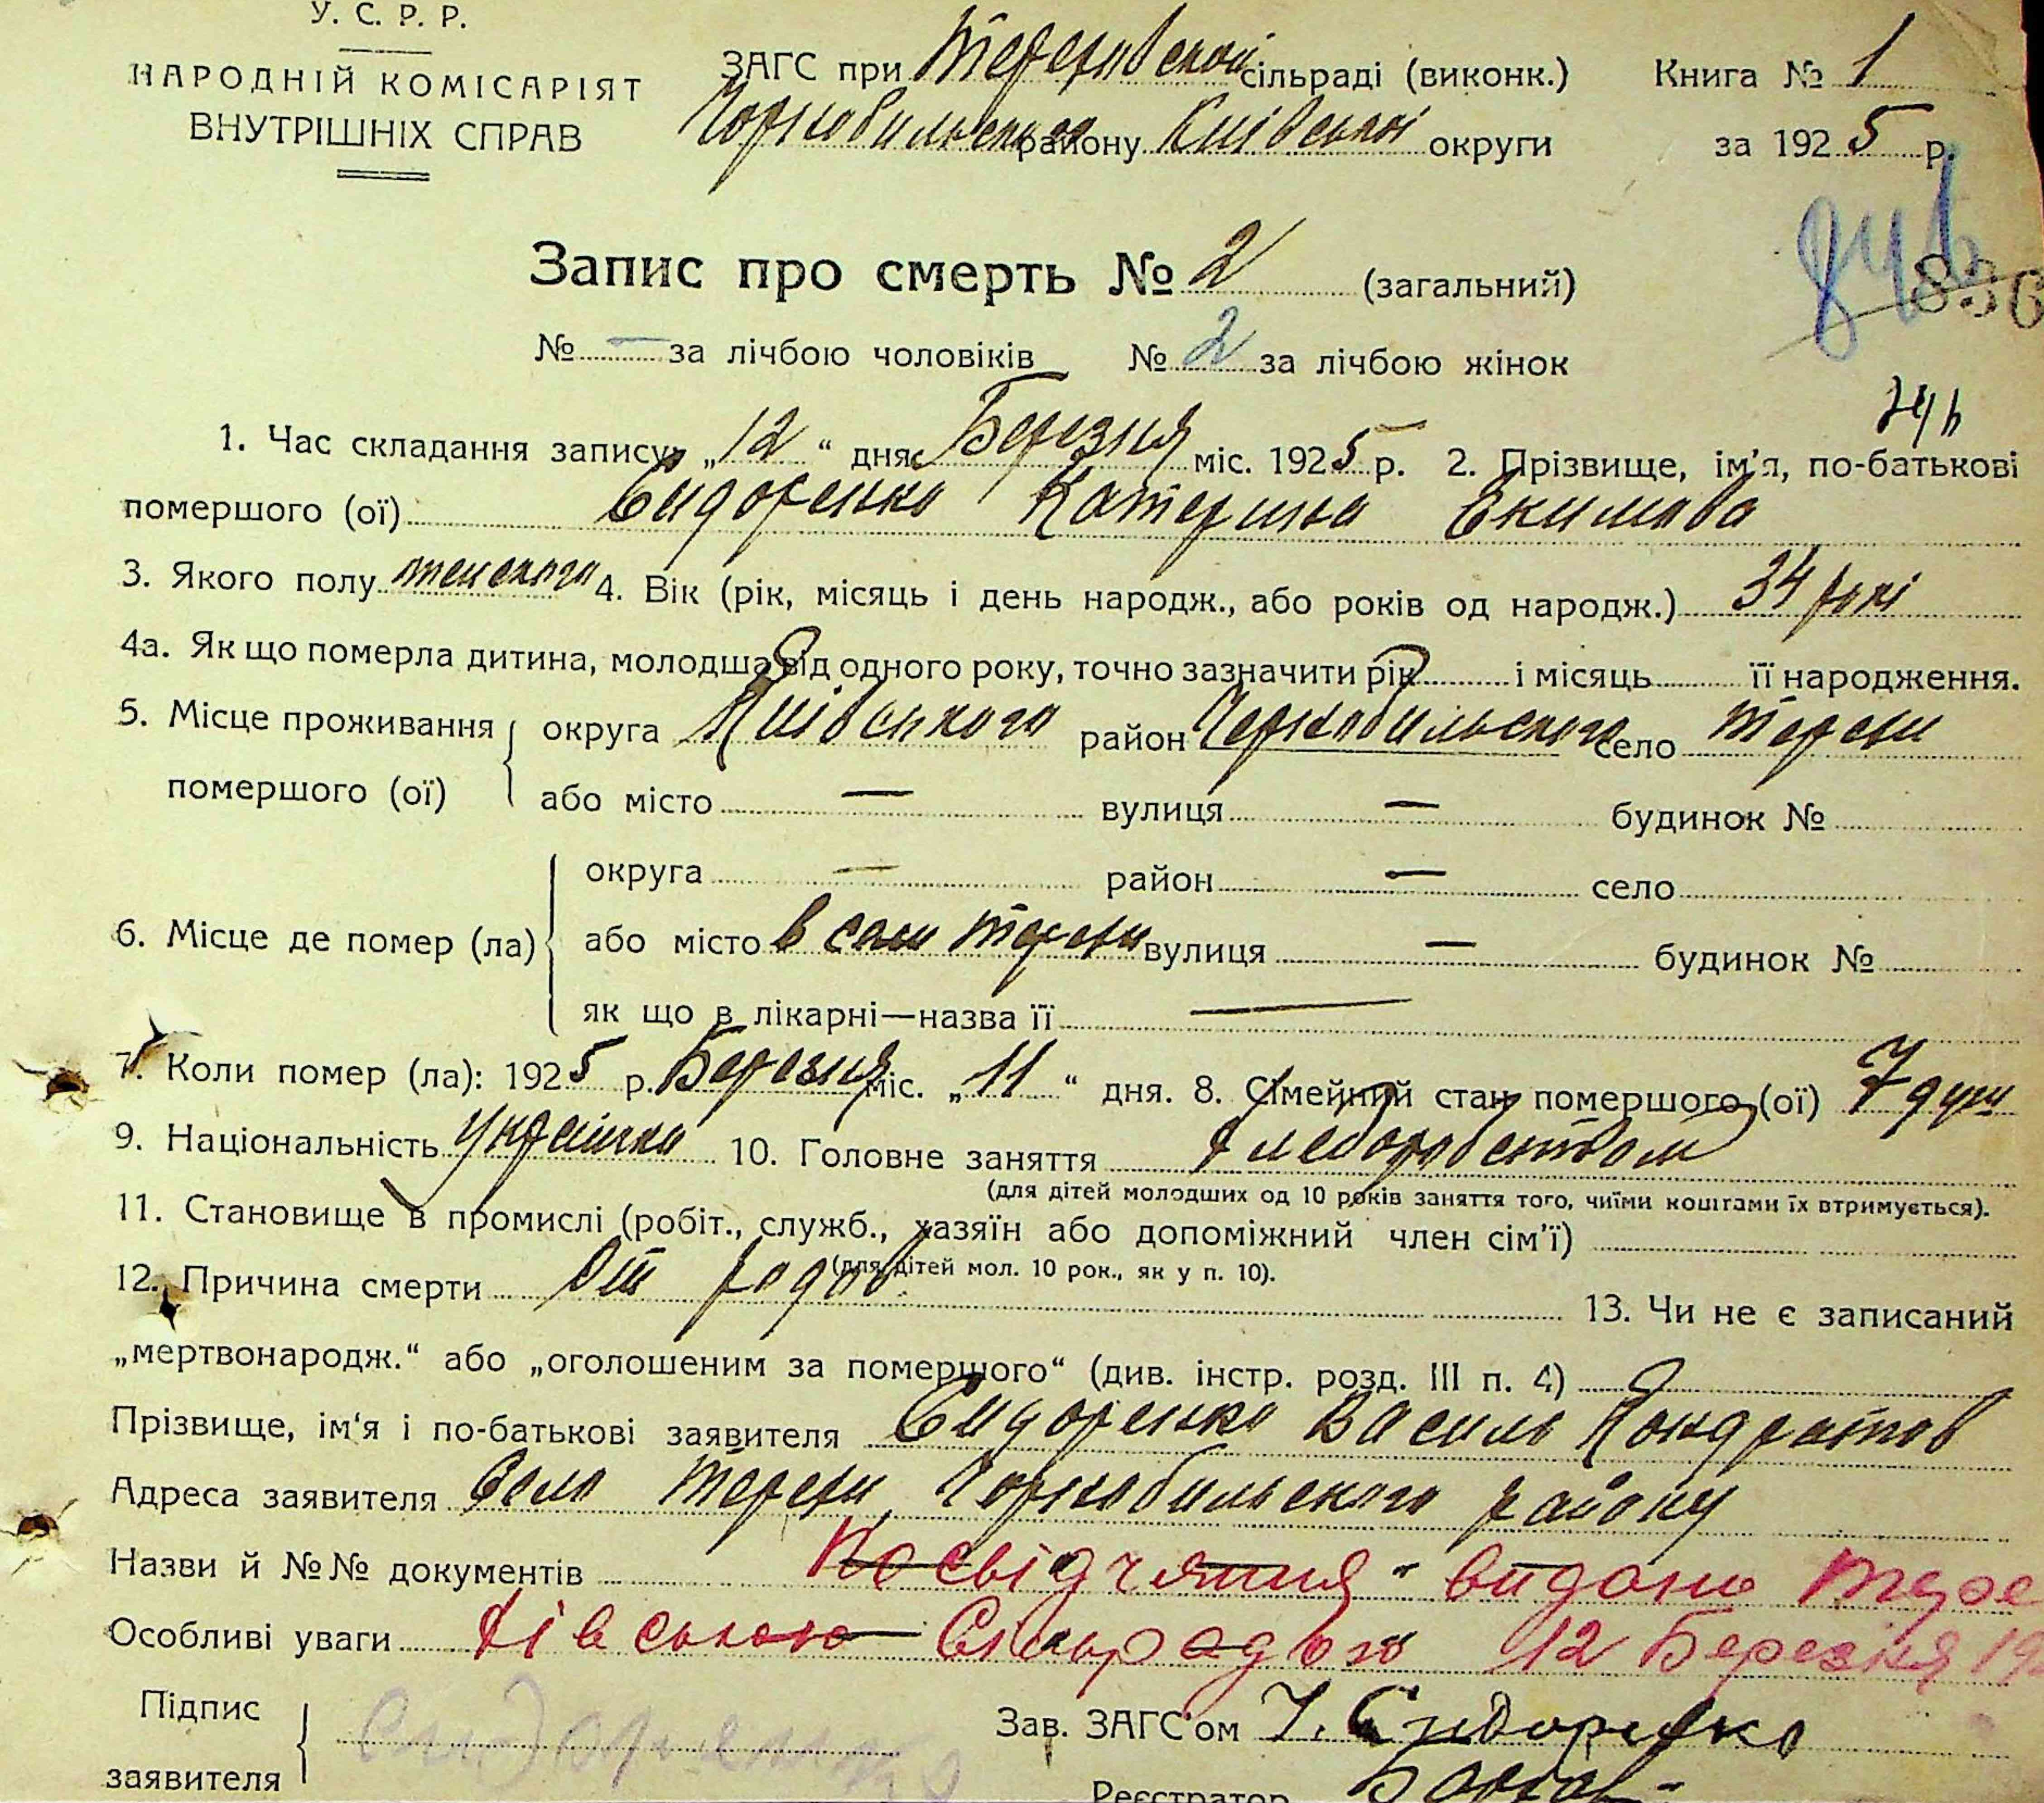 У. С. Р. Р.
НАРОДНІЙ КОМІСАРІЯТ
ВНУТРІШНІХ СПРАВ
ЗАГС при сільраді (виконк.)
Чорнобильского району Київської округи
Книга № 1
за 1925 р.
836
Запис про смерть № 2 (загальний)
№ — за лічбою чоловіків № 2 за лічбою жінок
1. Час складання запису „12“ дня Березня міс. 1925 р. 2. Прізвище, ім'я, по-батькові
помершого (ої) Сидоренко Катерина Екимова
3. Якого полу женского 4. Вік (рік, місяць і день народж., або років од народж.) 34 рокі
4а. Як що померла дитина, молодша від одного року, точно зазначити рік і місяць її народження.
5. Місце проживання помершого (ої) округа Київського район Чернобильского село Терехи
або місто — вулиця — будинок №
6. Місце де помер (ла) округа — район — село
або місто в сели Терехи вулиця — будинок №
як що в лікарні—назва її —
7. Коли помер (ла): 1925 р. Березня міс. „11“ дня. 8. Сімейний стан помершого (ої) 7 душ
9. Національність Українка 10. Головне заняття хлеборобством
(для дітей молодших од 10 років заняття того, чиїми коштами їх втримується).
11. Становище в промислі (робіт., служб., хазяїн або допоміжний член сім'ї)
(для дітей мол. 10 рок., як у п. 10).
12. Причина смерти От родов 13. Чи не є записаний
„мертвонародж.“ або „оголошеним за помершого“ (див. інстр. розд. III п. 4)
Прізвище, ім'я і по-батькові заявителя Сидоренко Василь Кондратов
Адреса заявителя Село Терехи Чорнобильского району
Назви й №№ документів Посвідчення видано Тере
Особливі уваги хівською Сільрадою 12 Березня 19
Підпис заявителя Сидоренко
Зав. ЗАГС'ом Сидоренко
Реєстратор